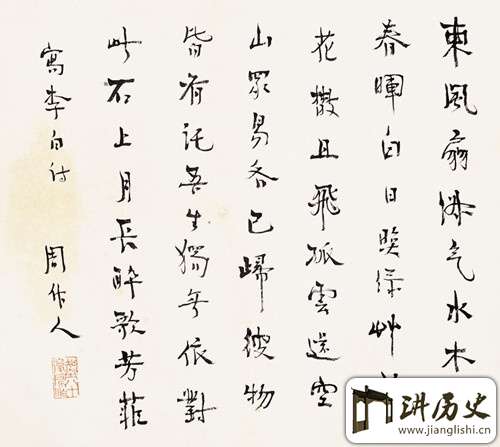 東風扇淑气水木
春暉白日綠艸
花散且飛孤雲還空
山眾鳥各已歸彼物
皆有託吾生獨無依對
此石上月長醉歌芳菲
寫李白詩
周作人
讲历史
www.jianglishi.cn